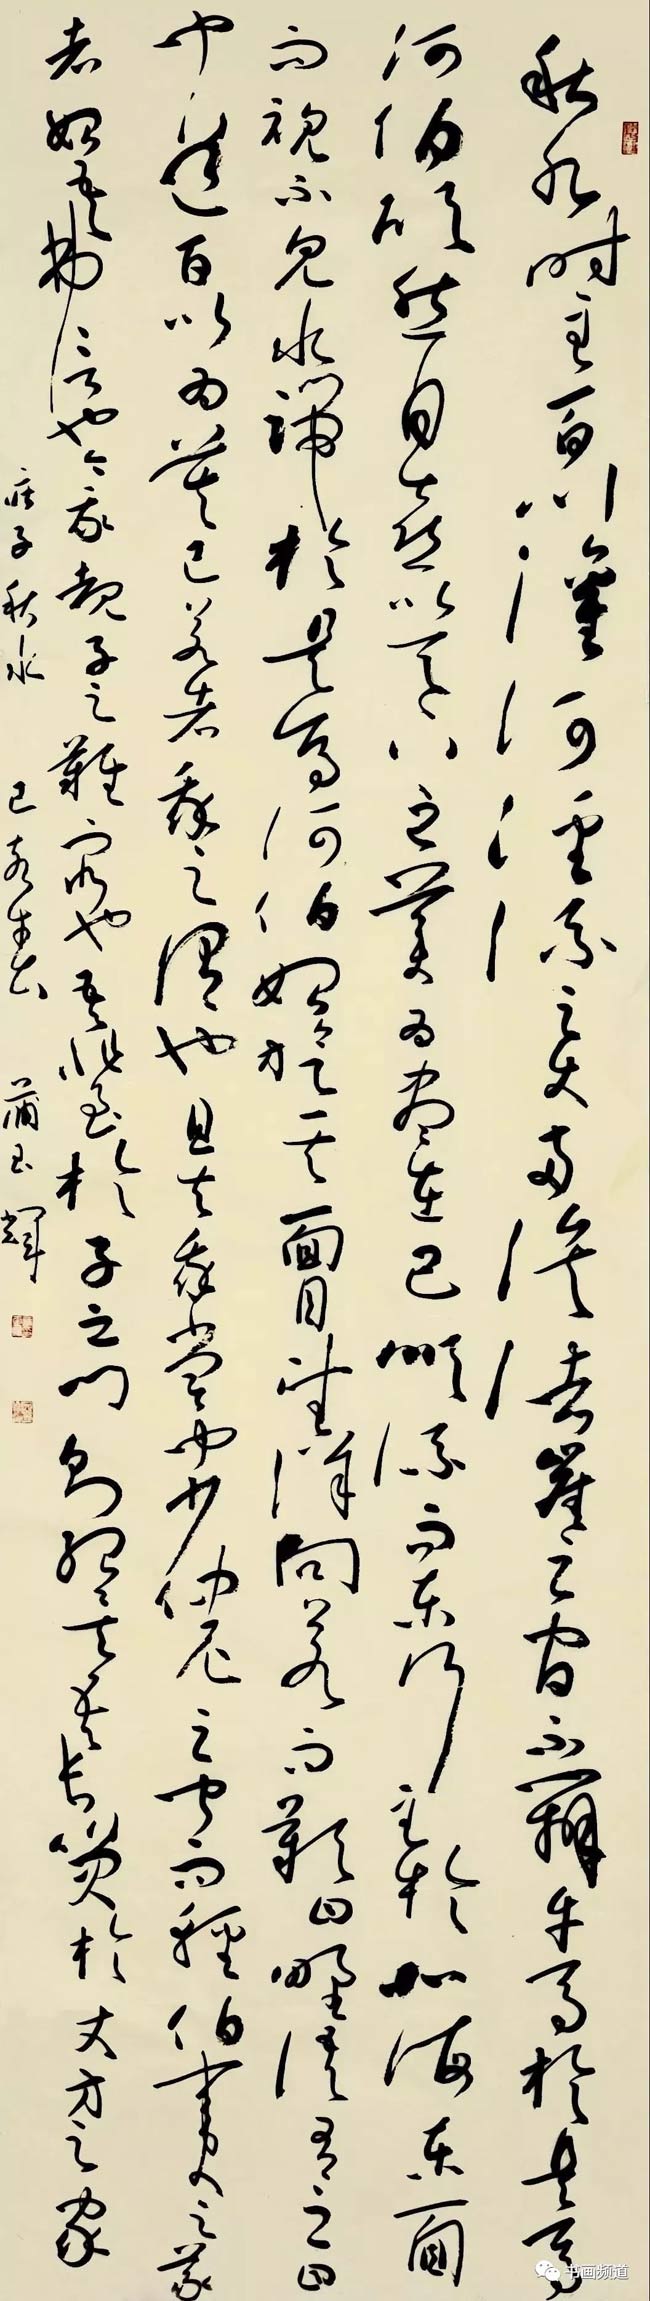 秋水时至百川灌河泾流之大两涘渚崖之间不辩牛马于是焉
河伯欣然自喜以天下之美为尽在己顺流而东行至于北海东面
而视不见水端于是焉河伯始旋其面目望洋向若而叹曰野语有之曰
闻道百以为莫己若者我之谓也且夫我尝闻少仲尼之闻而轻伯夷之义
者始吾弗信也今我睹子之难穷也吾非至于子之门则殆矣吾长笑于大方之家
庄子秋水 己亥 蒲玉辉
书画频道